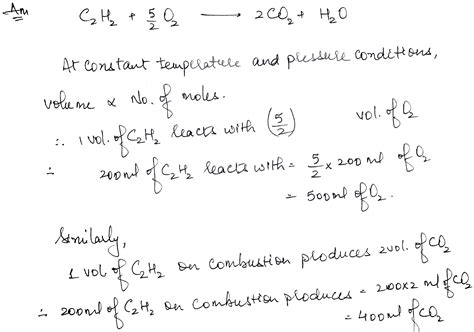 Ans C₂H₂ + 5/2 O₂ → 2CO₂ + H₂O
At constant temperature and pressure conditions,
volume ∝ No. of moles.
∴ 1 vol. of C₂H₂ reacts with (5/2) vol. of O₂
∴ 200 ml of C₂H₂ reacts with = 5/2 × 200 ml of O₂
= 500 ml of O₂.
Similarly,
1 vol of C₂H₂ on combustion produces 2 vol. of CO₂
∴ 200 ml of C₂H₂ on combustion produces = 200×2 ml of CO₂
= 400 ml of CO₂